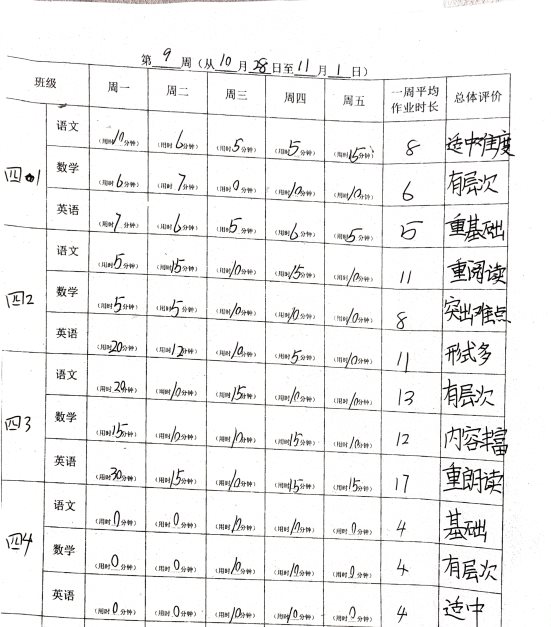 第9周（从10月28日至11月1日）
班级 周一 周二 周三 周四 周五 一周平均作业时长 总体评价
四.1 语文 （用时10分钟） （用时6分钟） （用时5分钟） （用时5分钟） （用时15分钟） 8 适中难度
数学 （用时6分钟） （用时7分钟） （用时0分钟） （用时10分钟） （用时10分钟） 6 有层次
英语 （用时7分钟） （用时6分钟） （用时5分钟） （用时6分钟） （用时5分钟） 5 重基础
四2 语文 （用时5分钟） （用时15分钟） （用时10分钟） （用时15分钟） （用时10分钟） 11 重阅读
数学 （用时5分钟） （用时5分钟） （用时10分钟） （用时10分钟） （用时10分钟） 8 突出难点
英语 （用时20分钟） （用时12分钟） （用时10分钟） （用时5分钟） （用时10分钟） 11 形式多
四3 语文 （用时20分钟） （用时10分钟） （用时15分钟） （用时10分钟） （用时10分钟） 13 有层次
数学 （用时15分钟） （用时10分钟） （用时10分钟） （用时15分钟） （用时10分钟） 12 内容丰富
英语 （用时30分钟） （用时15分钟） （用时10分钟） （用时15分钟） （用时15分钟） 17 重朗读
四4 语文 （用时0分钟） （用时0分钟） （用时10分钟） （用时10分钟） （用时0分钟） 4 基础
数学 （用时0分钟） （用时0分钟） （用时10分钟） （用时10分钟） （用时0分钟） 4 有层次
英语 （用时0分钟） （用时0分钟） （用时10分钟） （用时10分钟） （用时0分钟） 4 适中